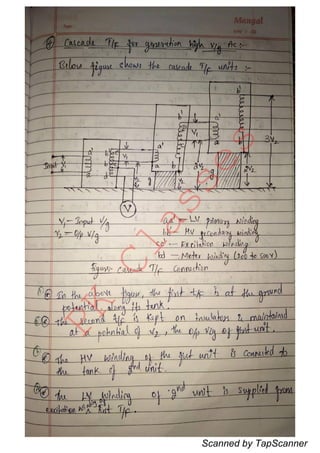 Mangal
Cascade T/F for generation high V/g Ac :-
Below figure shows the cascade T/F units :-
Input
V₁
V₂
2V₂
3V₂
V
V₁ - Input V/g
V₂ - O/p V/g
LV primary winding
HV secondary winding
Excitation winding
bd - Meter winding (200 to 500V)
figure: cascade T/F connection
In the above figure, the first t/f is at the ground
potential along its tank.
The second T/F is kept on insulators & maintained
at a potential of V₂, the O/p V/g of first unit.
The HV winding of the first unit is connected to
the tank of 2nd unit.
The LV winding of 2nd unit is supplied from
excitation winding of first T/F.
Scanned by TapScanner